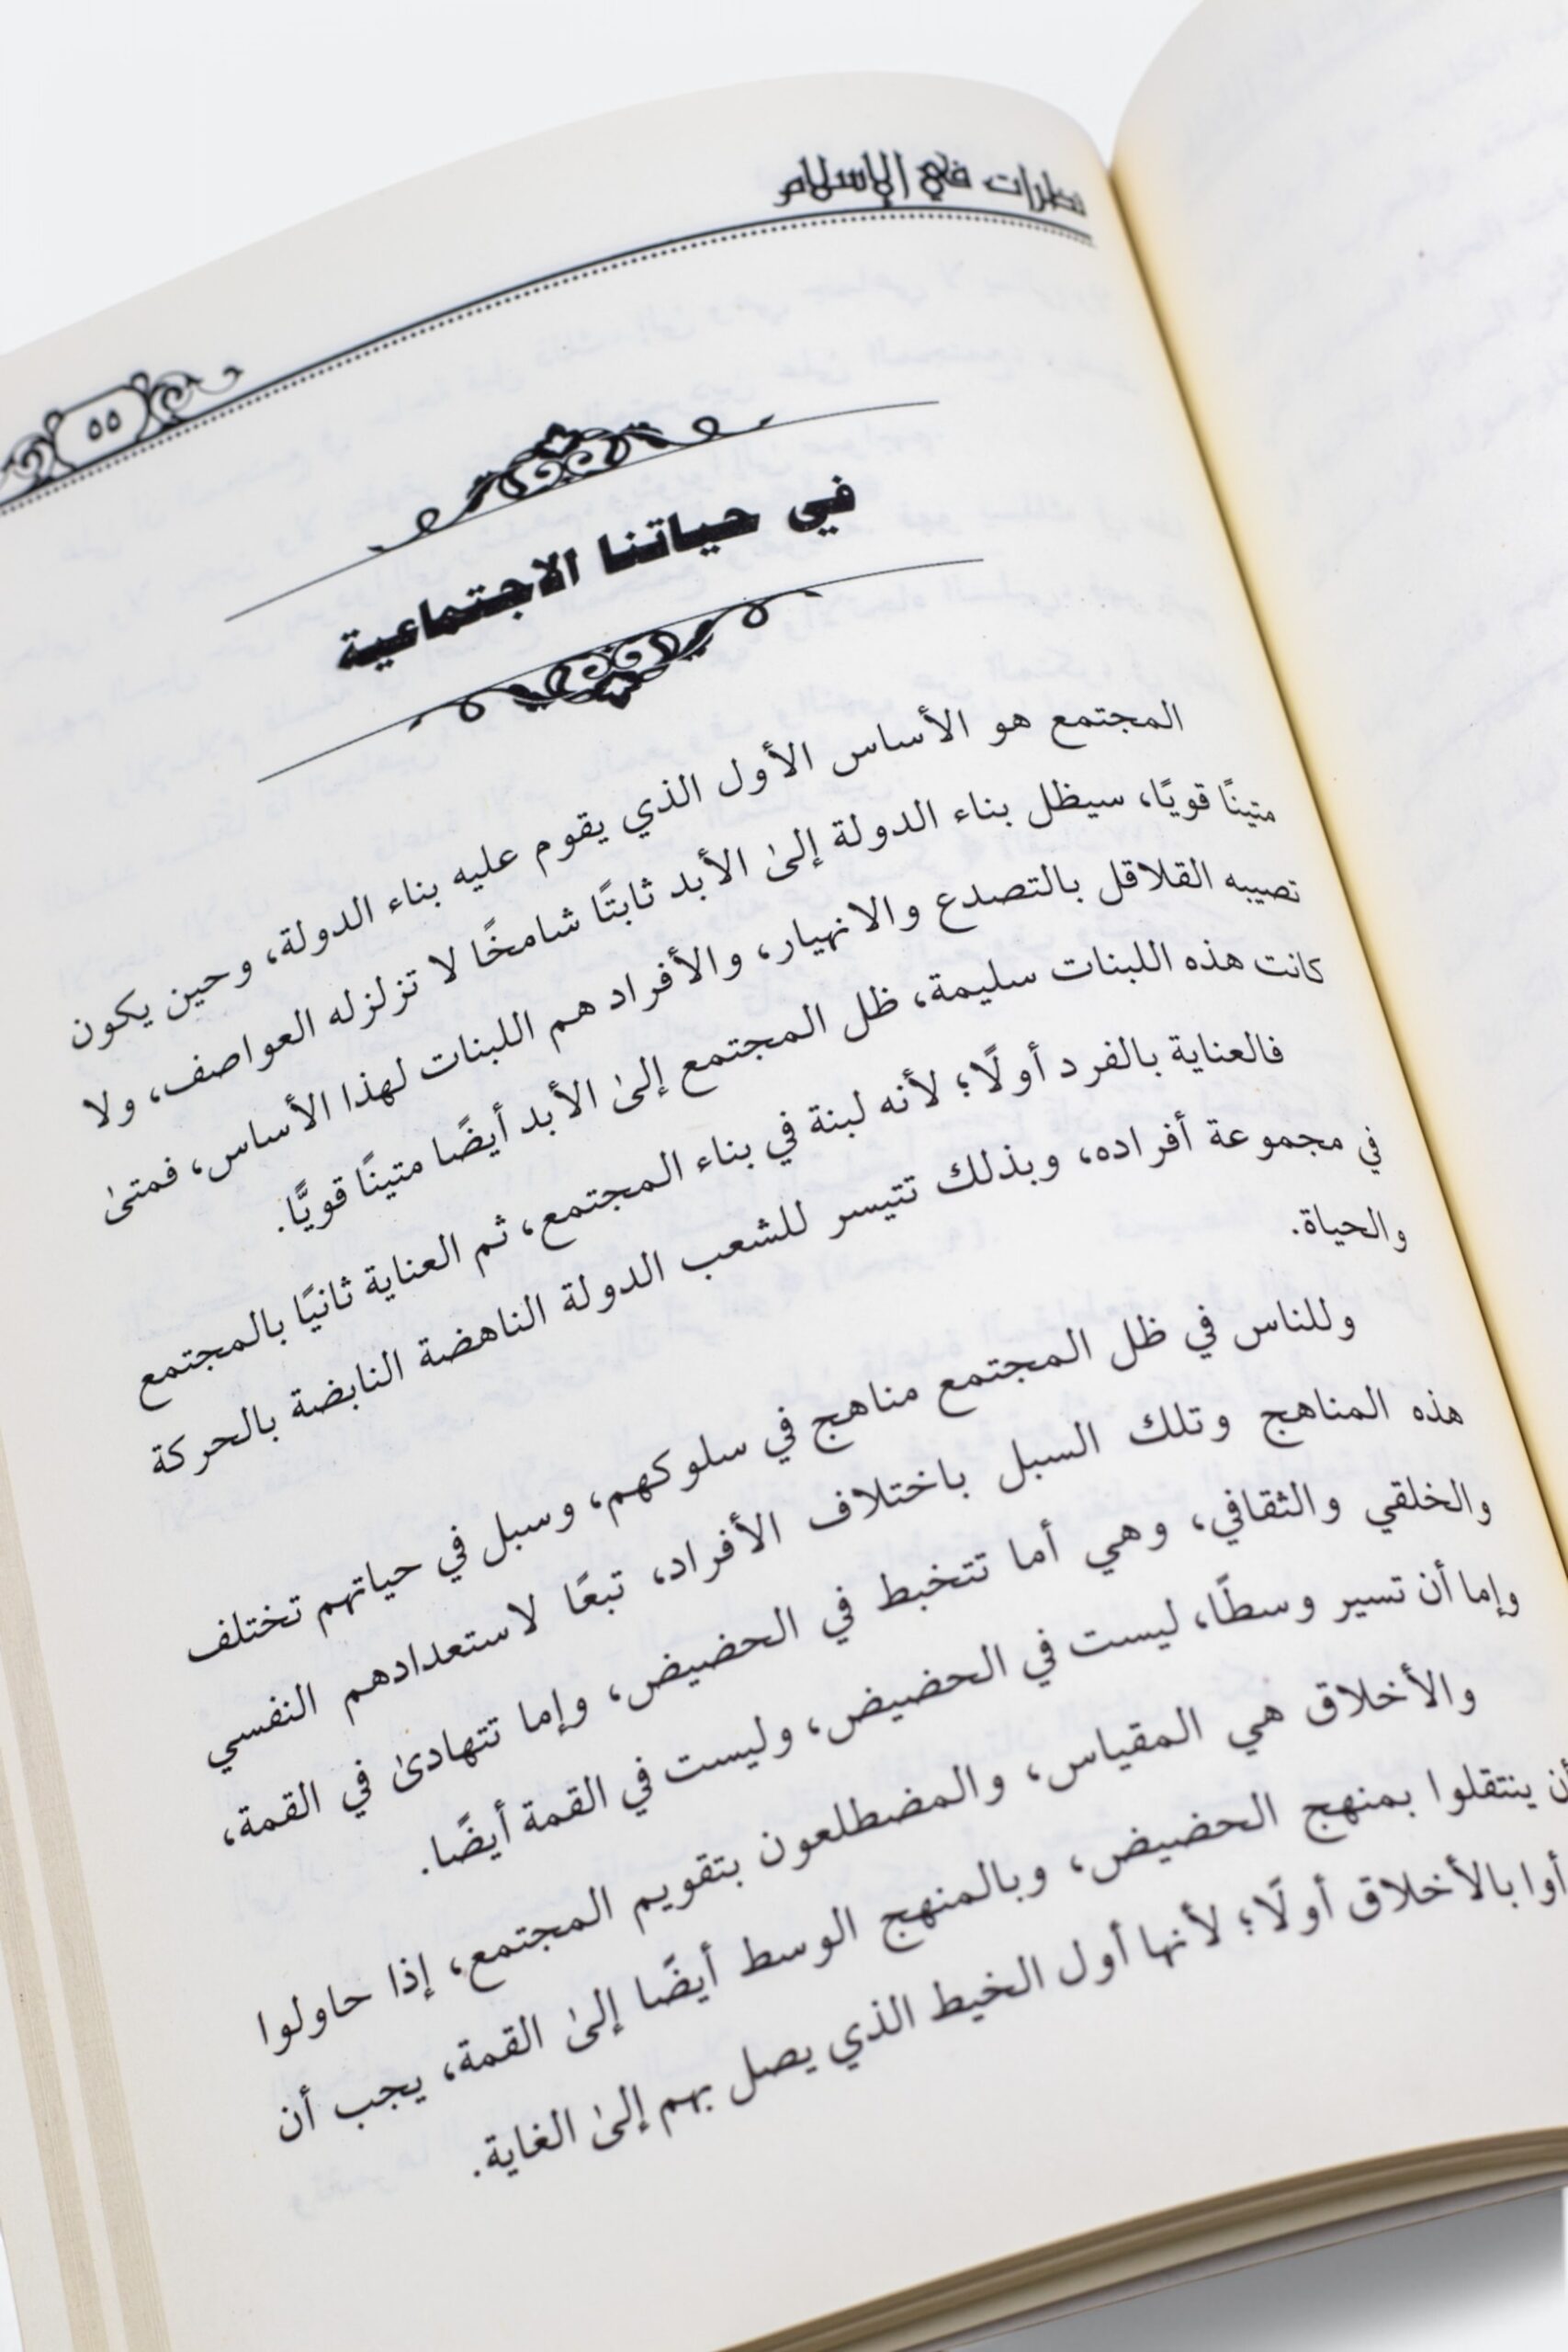 نظرات في الإسلام
٥٥
في حياتنا الاجتماعية
المجتمع هو الأساس الأول الذي يقوم عليه بناء الدولة، وحين يكون
متينًا قويًا، سيظل بناء الدولة إلىٰ الأبد ثابتًا شامخًا لا تزلزله العواصف، ولا
تصيبه القلاقل بالتصدع والانهيار، والأفراد هم اللبنات لهذا الأساس، فمتىٰ
كانت هذه اللبنات سليمة، ظل المجتمع إلىٰ الأبد أيضًا متينًا قويًّا.
فالعناية بالفرد أولًا؛ لأنه لبنة في بناء المجتمع، ثم العناية ثانيًا بالمجتمع
في مجموعة أفراده، وبذلك تتيسر للشعب الدولة الناهضة النابضة بالحركة
والحياة.
وللناس في ظل المجتمع مناهج في سلوكهم، وسبل في حياتهم تختلف
هذه المناهج وتلك السبل باختلاف الأفراد، تبعًا لاستعدادهم النفسي
والخلقي والثقافي، وهي أما تتخبط في الحضيض، وإما تتهادىٰ في القمة،
وإما أن تسير وسطًا، ليست في الحضيض، وليست في القمة أيضًا.
والأخلاق هي المقياس، والمضطلعون بتقويم المجتمع، إذا حاولوا
أن ينتقلوا بمنهج الحضيض، وبالمنهج الوسط أيضًا إلىٰ القمة، يجب أن
أوا بالأخلاق أولًا؛ لأنها أول الخيط الذي يصل بهم إلىٰ الغاية.